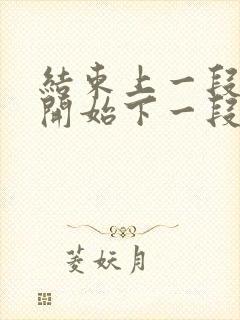 結束上一段
開始下一段
菱妖月